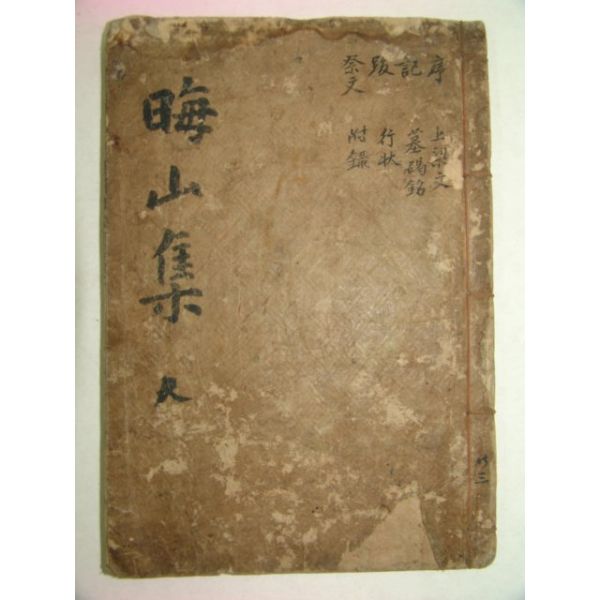 序
記
跋
祭文
上梁文
墓碣銘
行狀
附錄
晦山集
共三